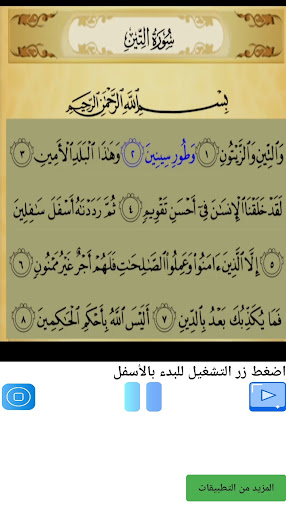 سُورَةُ التِّينِ
بِسْمِ اللَّهِ الرَّحْمَٰنِ الرَّحِيمِ
وَالتِّينِ وَالزَّيْتُونِ ١ وَطُورِ سِينِينَ ٢ وَهَٰذَا الْبَلَدِ الْأَمِينِ ٣
لَقَدْ خَلَقْنَا الْإِنسَٰنَ فِي أَحْسَنِ تَقْوِيمٍ ٤ ثُمَّ رَدَدْنَٰهُ أَسْفَلَ سَٰفِلِينَ
٥ إِلَّا الَّذِينَ ءَامَنُوا وَعَمِلُوا الصَّٰلِحَٰتِ فَلَهُمْ أَجْرٌ غَيْرُ مَمْنُونٍ ٦
فَمَا يُكَذِّبُكَ بَعْدُ بِالدِّينِ ٧ أَلَيْسَ اللَّهُ بِأَحْكَمِ الْحَٰكِمِينَ ٨
اضغط زر التشغيل للبدء بالأسفل
المزيد من التطبيقات